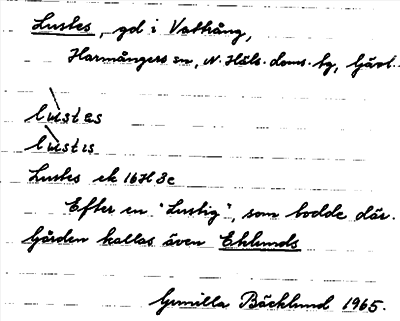 Lustes, gd i Vattrång,
Harmångers sn, N. Häls. doms. hg, Gävl.
lustes
lustis
Lustes ek 16H 8c
Efter en "Lustig", som bodde där.
Gården kallas även Eklunds
Gunilla Bäcklund 1965.